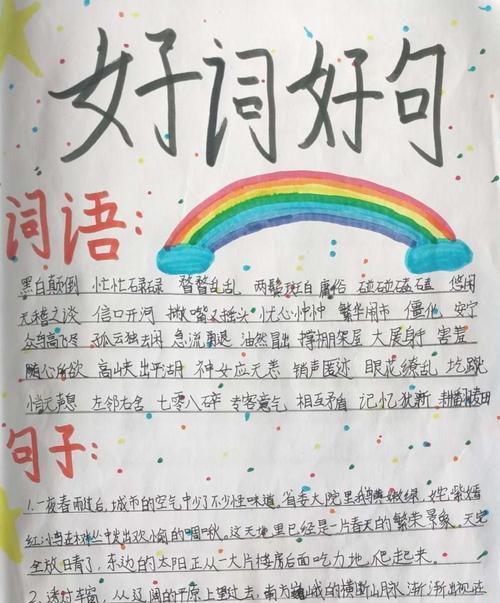 好词好句
词语:
黑白颠倒 忙忙碌碌 瞀瞀乱乱 两鬓斑白 庸俗 碰碰磕磕 悠闲
无稽之谈 信口开河 撇嘴又摇头 忧心忡忡 繁华闹市 僵化 安宁
众鸟高飞尽 孤云独去闲 急流勇退 油然冒出 撑棚架屋 大展身手 害羞
随心所欲 高峡出平湖 神女应无恙 销声匿迹 眼花缭乱
悄无声息 左邻右舍 七零八碎 专客意气 相互矛盾 记忆犹新
句子:
1.一夜春雨过后,城市的空气中少了不少怪味道。省委大院里 嫩绿,姹紫嫣
红,小鸟在林丛中发出欢愉的啁啾。这天地里已经是一片春天的繁荣景象。天完
全放晴了,东边的太阳正从一大片楼房后面吃力地 爬起来。
2.透过车窗,从辽阔的平原上望过去,南方巍峨的横断山脉,渐渐出现在